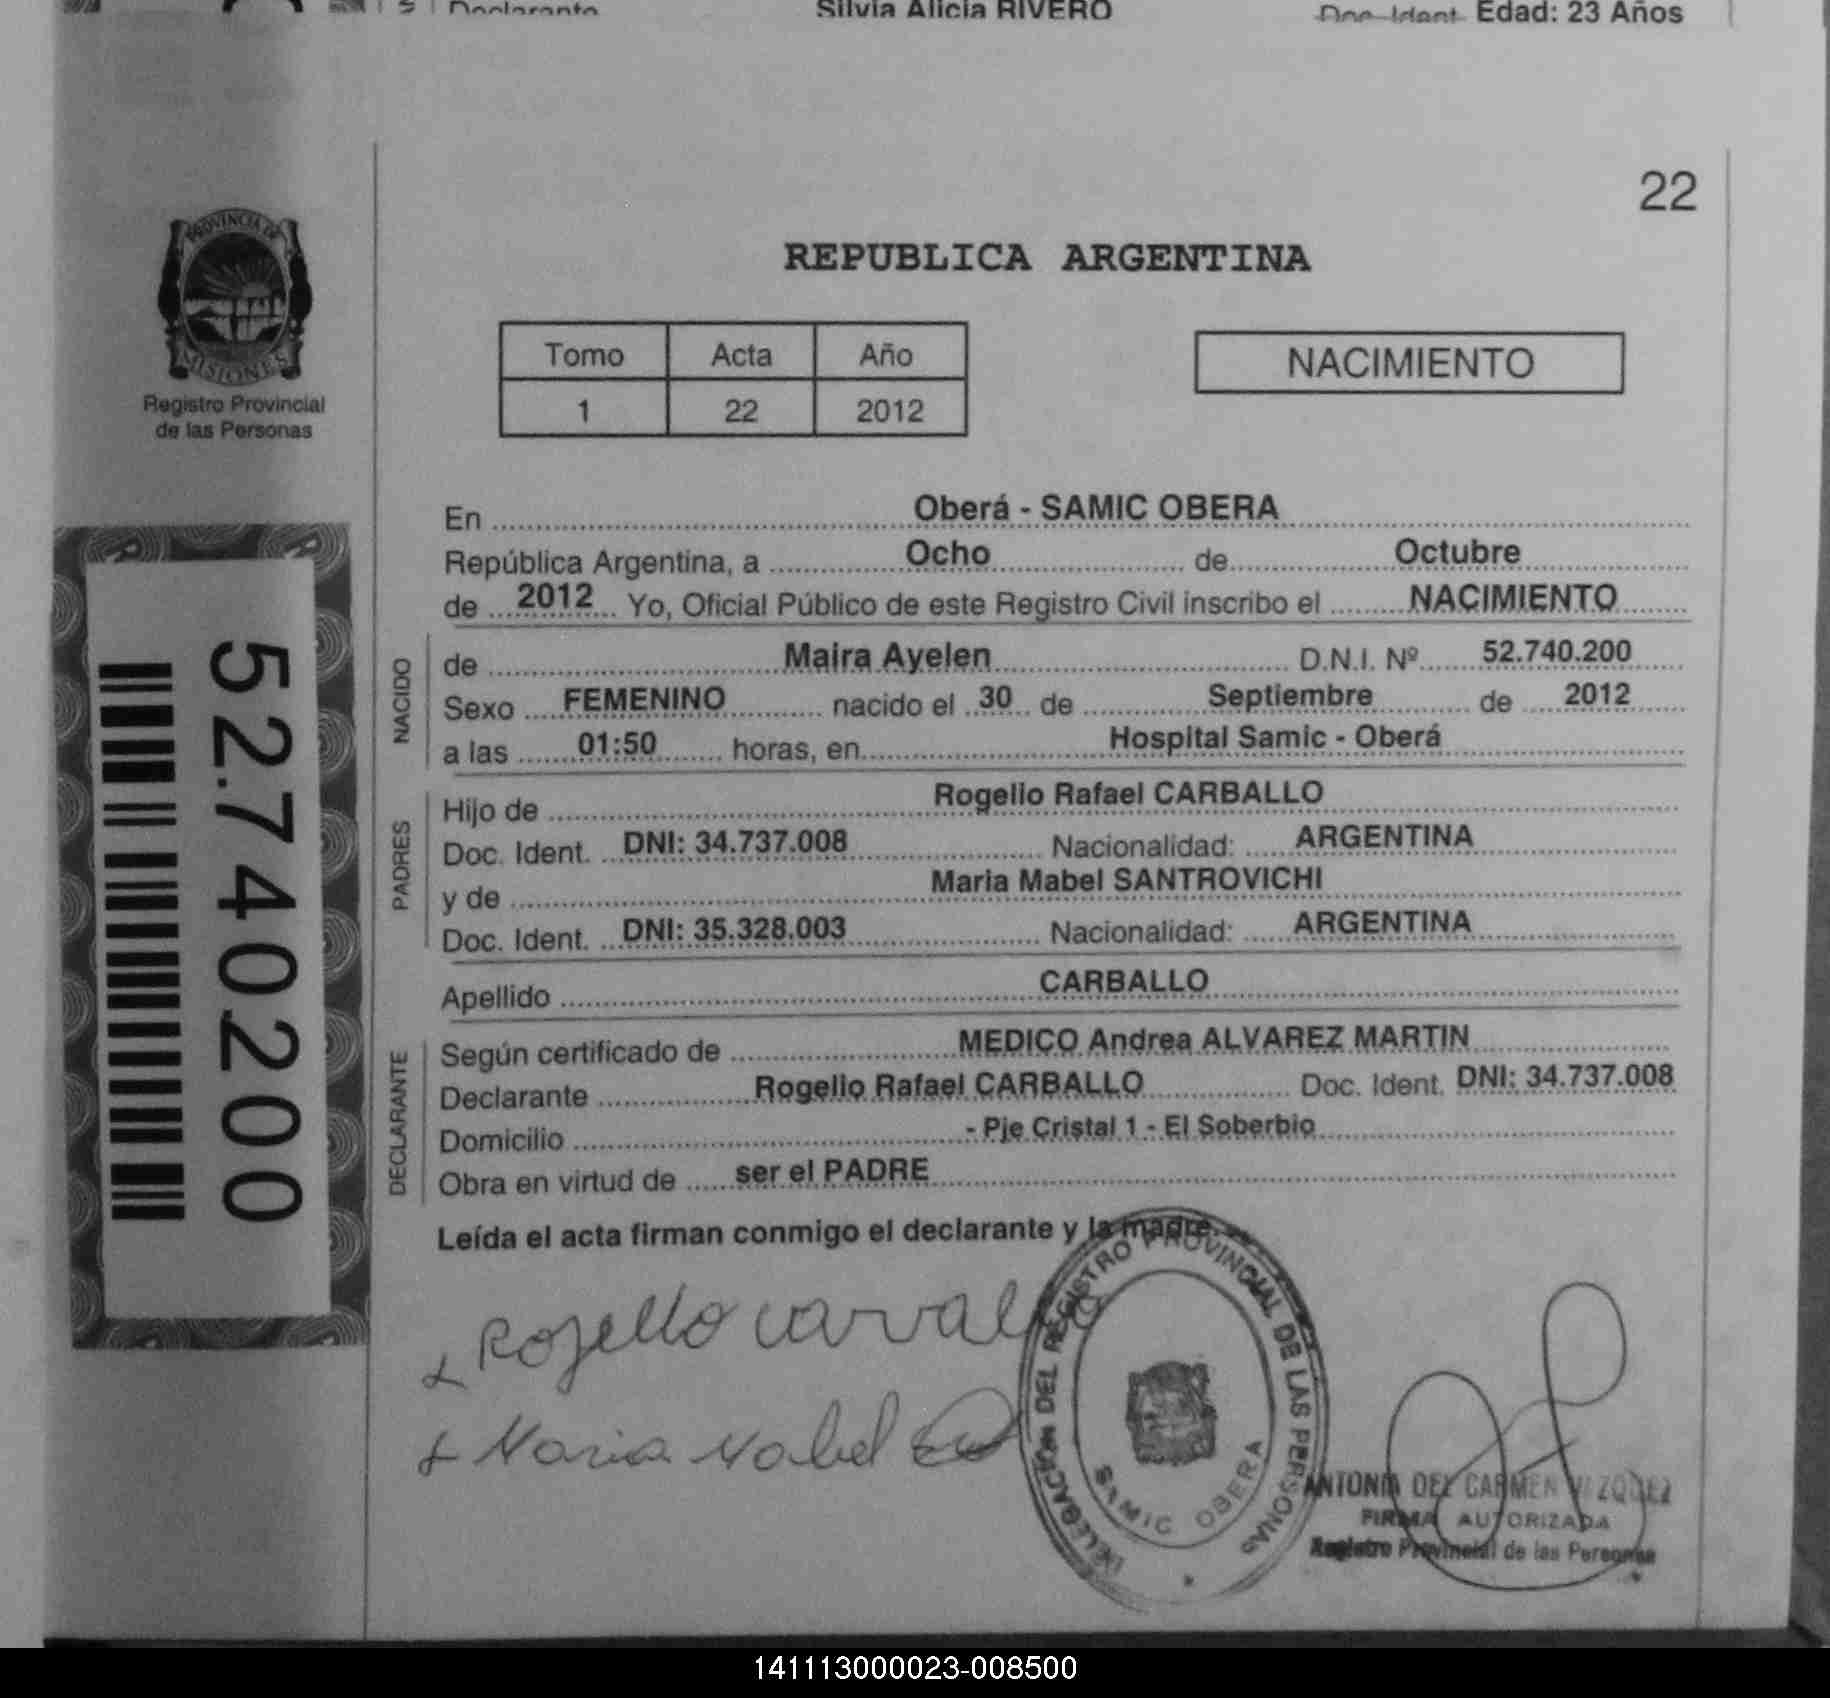 Declarante Silvia Alicia RIVERO Doc. Ident. Edad: 23 Años
22
PROVINCIA DE
MISIONES
Registro Provincial
de las Personas
REPUBLICA ARGENTINA
Tomo Acta Año
1 22 2012
NACIMIENTO
52.740.200
En Oberá - SAMIC OBERA
República Argentina, a Ocho de Octubre
de 2012 Yo, Oficial Público de este Registro Civil inscribo el NACIMIENTO
NACIDO
de Maira Ayelen D.N.I. Nº 52.740.200
Sexo FEMENINO nacido el 30 de Septiembre de 2012
a las 01:50 horas, en Hospital Samic - Oberá
PADRES
Hijo de Rogelio Rafael CARBALLO
Doc. Ident. DNI: 34.737.008 Nacionalidad: ARGENTINA
y de Maria Mabel SANTROVICHI
Doc. Ident. DNI: 35.328.003 Nacionalidad: ARGENTINA
Apellido CARBALLO
DECLARANTE
Según certificado de MEDICO Andrea ALVAREZ MARTIN
Declarante Rogelio Rafael CARBALLO Doc. Ident. DNI: 34.737.008
Domicilio - Pje Cristal 1 - El Soberbio
Obra en virtud de ser el PADRE
Leída el acta firman conmigo el declarante y la madre.
Rojello carvallo
Maria Mabel
DELEGACIÓN DEL REGISTRO PROVINCIAL DE LAS PERSONAS
SAMIC OBERA
ANTONIA DEL CARMEN VAZQUEZ
FIRMA AUTORIZADA
Registro Provincial de las Personas
141113000023-008500